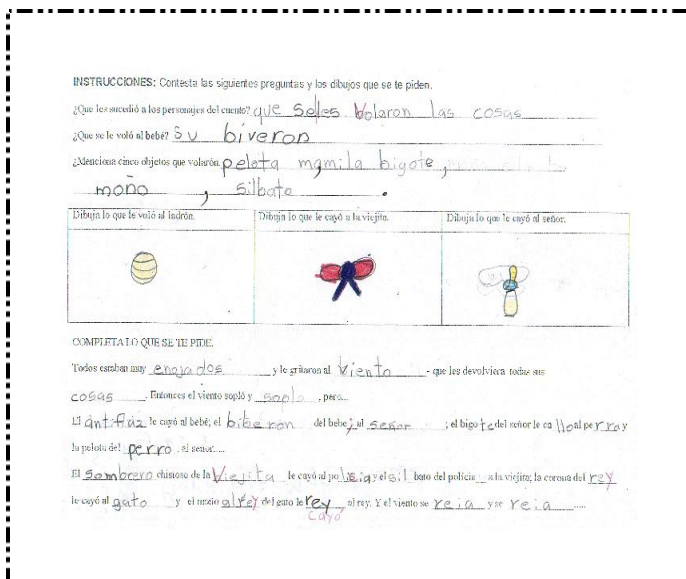 INSTRUCCIONES: Contesta las siguientes preguntas y los dibujos que se te piden.
¿Que les sucedió a los personajes del cuento? que seles Volaron las cosas
¿Que se le voló al bebé? Su biveron
¿Menciona cinco objetos que volarón. pelota mamila bigote,
moño , silbato .
Dibuja lo que le voló al ladrón. Dibuja lo que le cayó a la viejita. Dibuja lo que le cayó al señor.
COMPLETA LO QUE SE TE PIDE.
Todos estaban muy enojados y le gritaron al viento - que les devolviera todas sus
cosas . Entonces el viento sopló y soplo , pero...
El antifaz le cayó al bebé; el biberón del bebe y al señor ; el bigote del señor le ca llo al perra y
la pelota del perro . al señor....
El Sombrero chistoso de la Viejita le cayó al po lisia y el sil bato del policía a la viejita; la corona del rey
le cayó al gato y el moño al rey del gato le rey al rey. Y el viento se reia y se reia .....
cayó